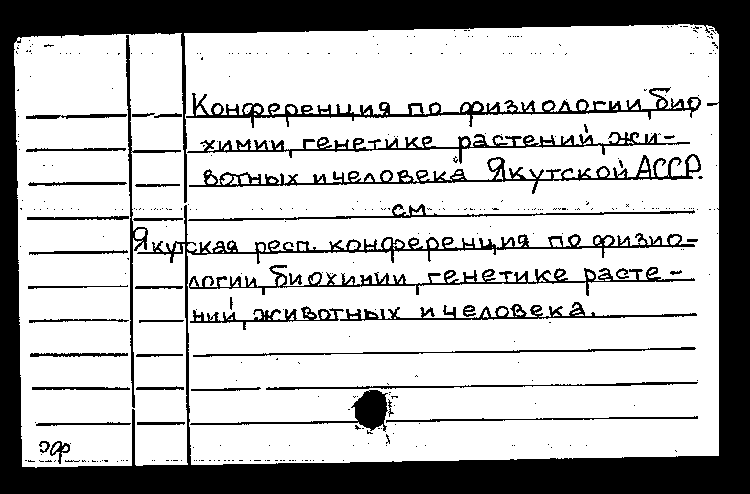 Конференция по физиологии, био-
химии, генетике растений, жи-
вотных и человека Якутской АССР.
см.
Якутская респ. конференция по физио-
логии, биохинии, генетике расте-
ний, животных и человека.
эф